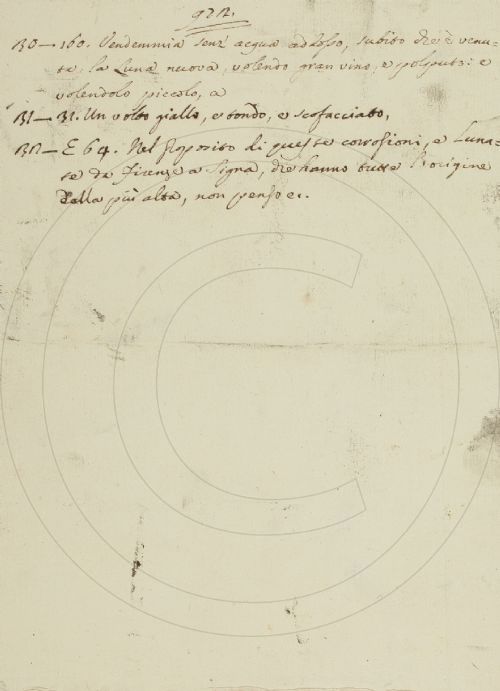 972.
30 — 160. Vendemmia senz' acqua adosso, subito che è venu=
ta; la Luna nuova, volendo gran vino, e polputo: e
volendolo piccolo, a
31 — 31. Un volto giallo, e tondo, e scofacciato,
32 — E 64. Nel proposito di queste corrosioni, e Luna=
te da Firenze a Signa, che hanno tutte l'origine
dalla più alta, non penso e.